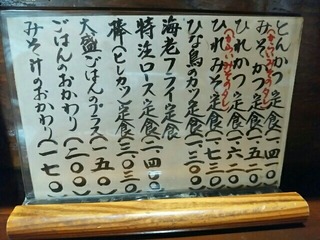 とんかつ定食(一、四〇〇)
(からいみそのタレ)
みそかつ定食(一、五一〇)
ひれかつ定食(一、六一〇)
(からいみそのタレ)
ひれみそかつ定食(一、七三〇)
ひな鳥のカツ定食(一、三〇〇)
海老フライ定食
特注ロース定食(二、四〇〇)
棒(ヒレカツ)定食(三、〇三〇)
大盛ごはんのプラス(一五〇)
ごはんのおかわり(二〇〇)
みそ汁のおかわり(一七〇)